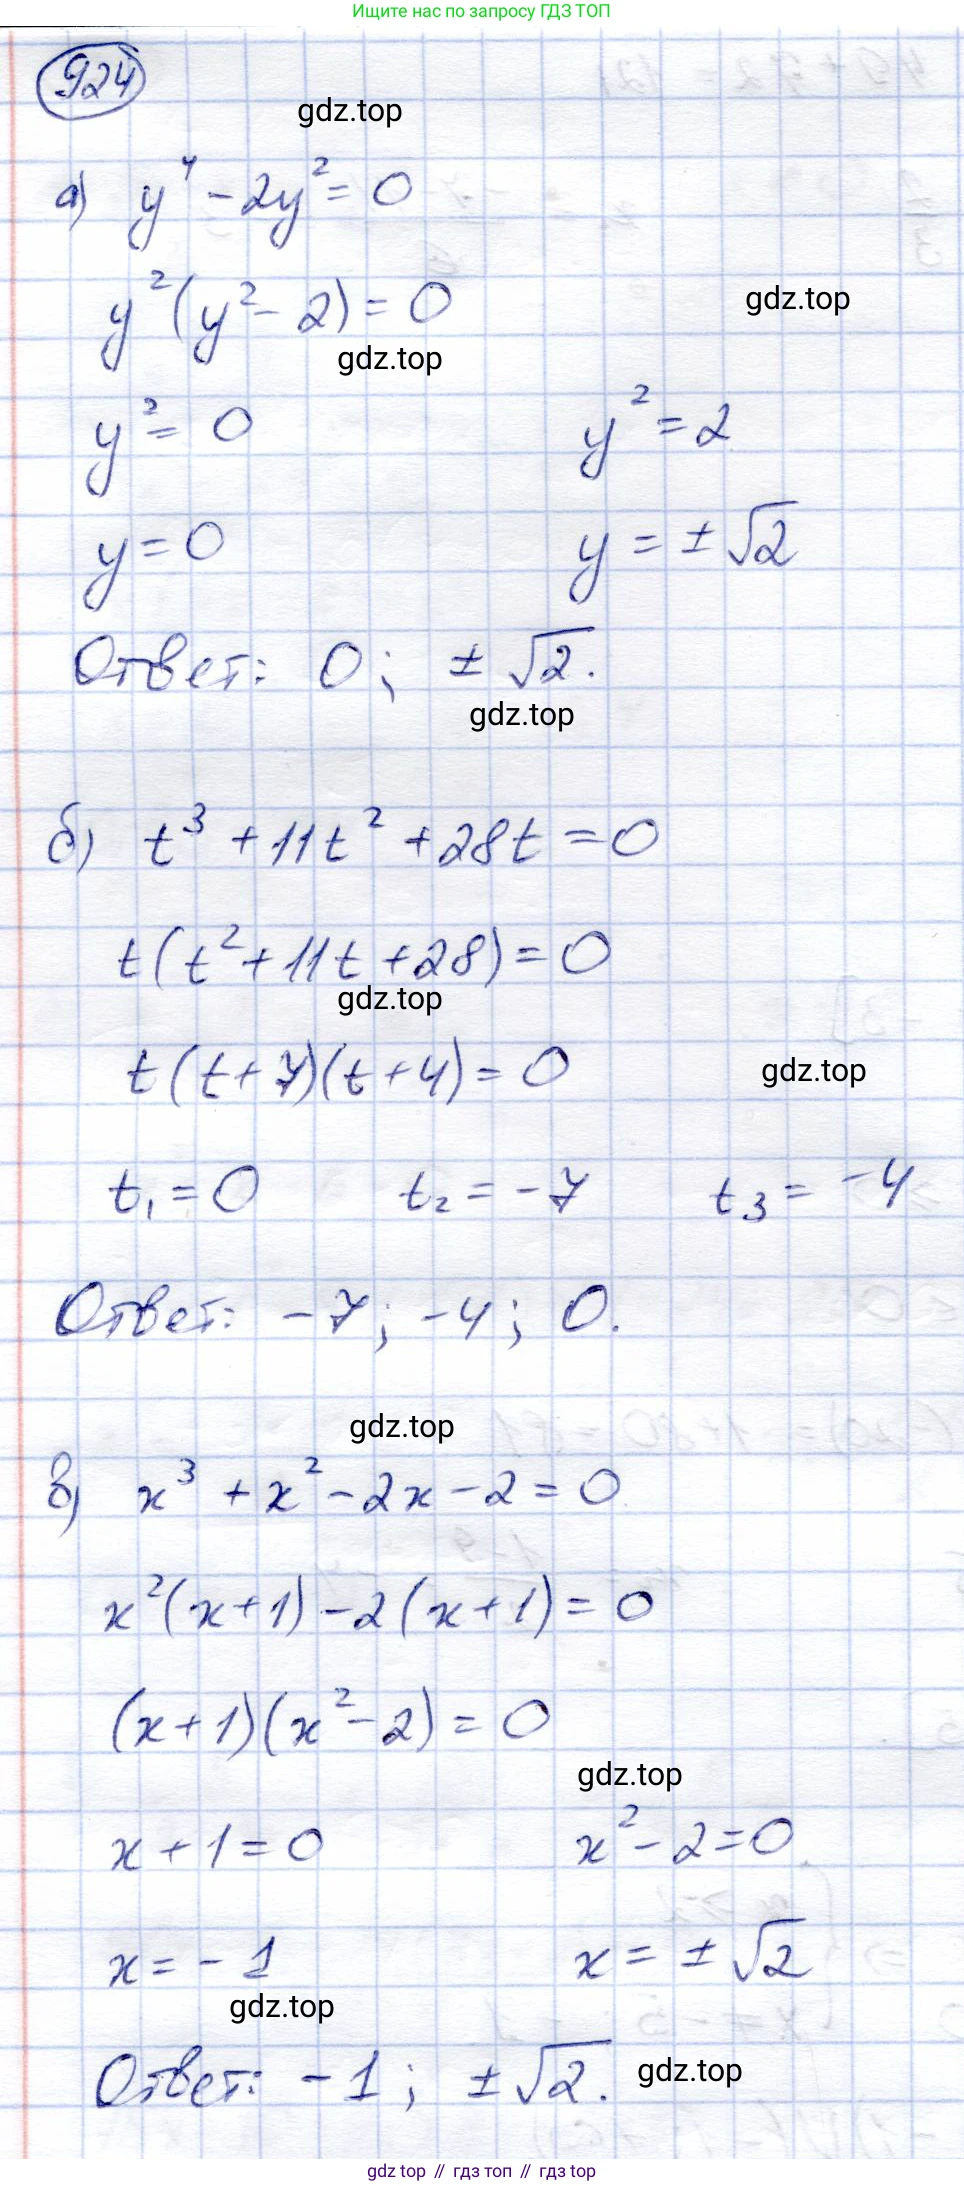 Ищите нас по запросу ГДЗ ТОП
924
gdz.top
а) y⁴ - 2y² = 0
y²(y² - 2) = 0
gdz.top
gdz.top
y² = 0 y² = 2
y = 0 y = ± √2
Ответ: 0; ± √2.
gdz.top
б) t³ + 11t² + 28t = 0
t(t² + 11t + 28) = 0
gdz.top
t(t + 7)(t + 4) = 0
gdz.top
t₁ = 0 t₂ = -7 t₃ = -4
Ответ: -7; -4; 0.
gdz.top
в) x³ + x² - 2x - 2 = 0
x²(x + 1) - 2(x + 1) = 0
(x + 1)(x² - 2) = 0
gdz.top
x + 1 = 0 x² - 2 = 0
x = - 1 x = ± √2
gdz.top
Ответ: - 1; ± √2.
gdz.top
gdz top // гдз топ // gdz top